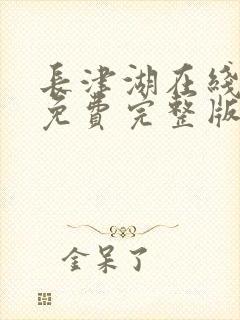 長津湖在綫
免費完整版
金呆了